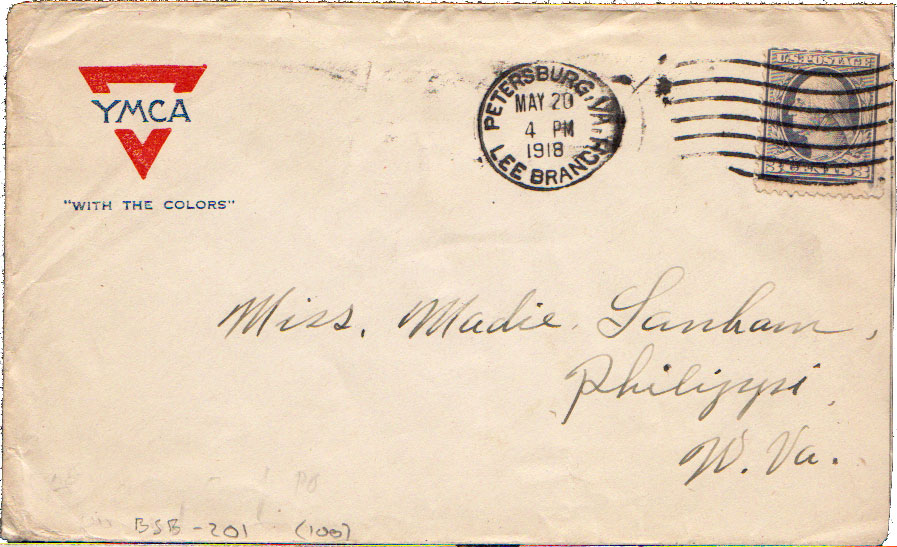 YMCA
"WITH THE COLORS"
PETERSBURG, VA.
MAY 20
4 PM
1918
LEE BRANCH
U.S. POSTAGE
3 CENTS 3
Miss. Madie. Lanham,
Philippi,
W. Va.
BSB-201 (100)